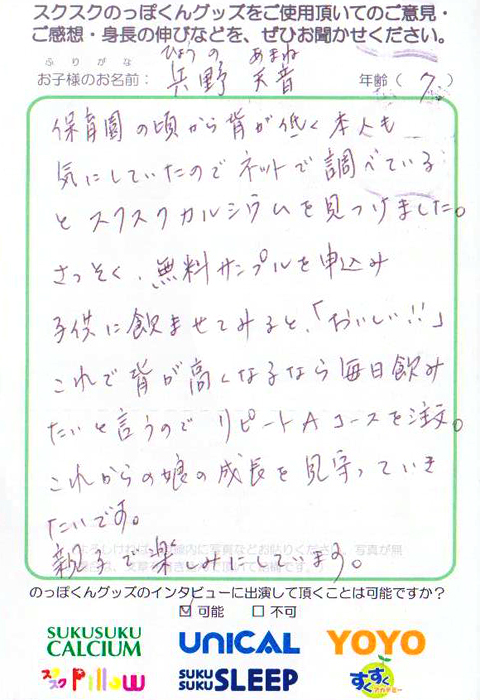 スクスクのっぽくんグッズをご使用頂いてのご意見・
ご感想・身長の伸びなどを、ぜひお聞かせください。
ふりがな ひょうの あまね
お子様のお名前： 兵野 天音 年齢（ 7 ）
保育園の頃から背が低く本人も
気にしていたのでネットで調べている
とスクスクカルシウムを見つけました。
さっそく、無料サンプルを申込み
子供に飲ませてみると、「おいしい!!」
これで背が高くなるなら毎日飲み
たいと言うのでリピートAコースを注文。
これからの娘の成長を見守っていき
たいです。
親子で楽しみにしています。
のっぽくんグッズのインタビューに出演して頂くことは可能ですか？
☑ 可能 □ 不可
SUKUSUKU CALCIUM UNICAL YOYO
スクスク Pillow SUKU SUKU SLEEP すくすくアカデミー